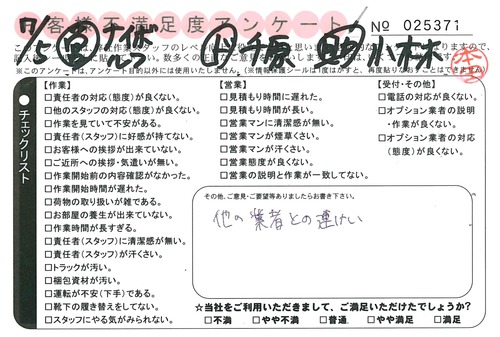 お客様不満足度アンケート
No 025371
チェックリスト
【作業】
□責任者の対応(態度)が良くない。
□他のスタッフの対応(態度)が良くない。
□作業を見ていて不安がある。
□責任者(スタッフ)に好感が持てない。
□お客様への挨拶が出来ていない。
□ご近所への挨拶・気遣いが無い。
□作業開始前の内容確認がなかった。
□作業開始時間が遅れた。
□荷物の取り扱いが雑である。
□お部屋の養生が出来ていない。
□作業時間が長すぎる。
□責任者(スタッフ)に清潔感が無い。
□責任者(スタッフ)が汗くさい。
□トラックが汚い。
□梱包資材が汚い。
□運転が不安(下手)である。
□靴下の履き替えをしてない。
□スタッフにやる気がみられない。
【営業】
□見積もり時間に遅れた。
□見積もり時間が長い。
□営業マンに清潔感が無い。
□営業マンが煙草くさい。
□営業マンが汗くさい。
□営業態度が良くない。
□営業の説明と作業が一致してない。
【受付・その他】
□電話の対応が良くない。
□オプション業者の説明
・作業が良くない。
□オプション業者の対応
(態度)が良くない。
その他、ご意見・ご要望等ありましたらお書き下さい。
他の業者との連けい
★当社をご利用いただきまして、ご満足いただけたでしょうか?
□不満 □やや不満 □普通 □やや満足 □満足